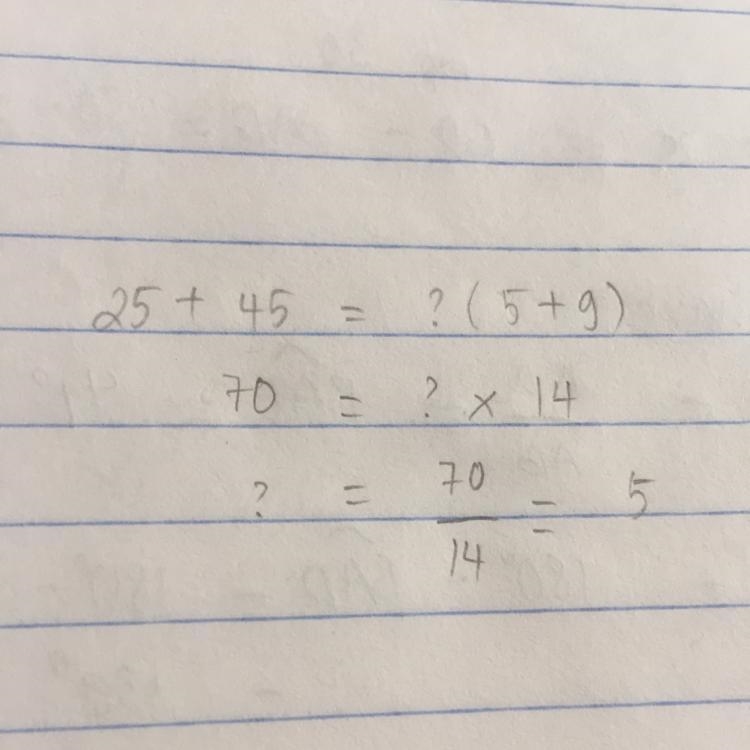 25 + 45 = ? ( 5 + 9 )
70 = ? × 14
? = 70/14 = 5